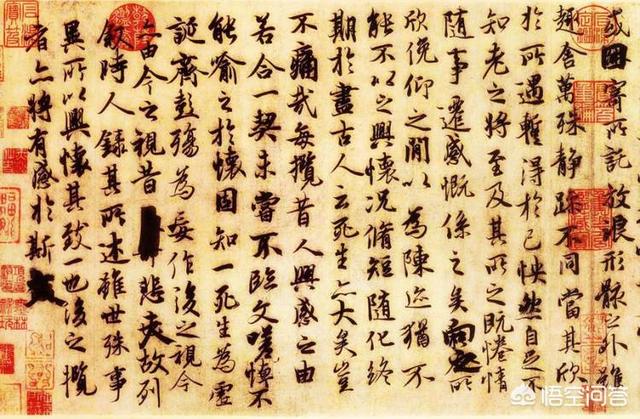 或因寄所託放浪形骸之外雖
趣舍萬殊靜躁不同當其欣
於所遇暫得於己怏然自足不
知老之將至及其所之既惓情
隨事遷感慨係之矣向之所
欣俛仰之閒以為陳迹猶不
能不以之興懷況脩短隨化終
期於盡古人云死生亦大矣豈
不痛哉每攬昔人興感之由
若合一契未嘗不臨文嗟悼不
能喻之於懷固知一死生為虛
誕齊彭殤為妄作後之視今
亦由今之視昔悲夫故列
敘時人錄其所述雖世殊事
異所以興懷其致一也後之攬
者亦將有感於斯文
悟空问答